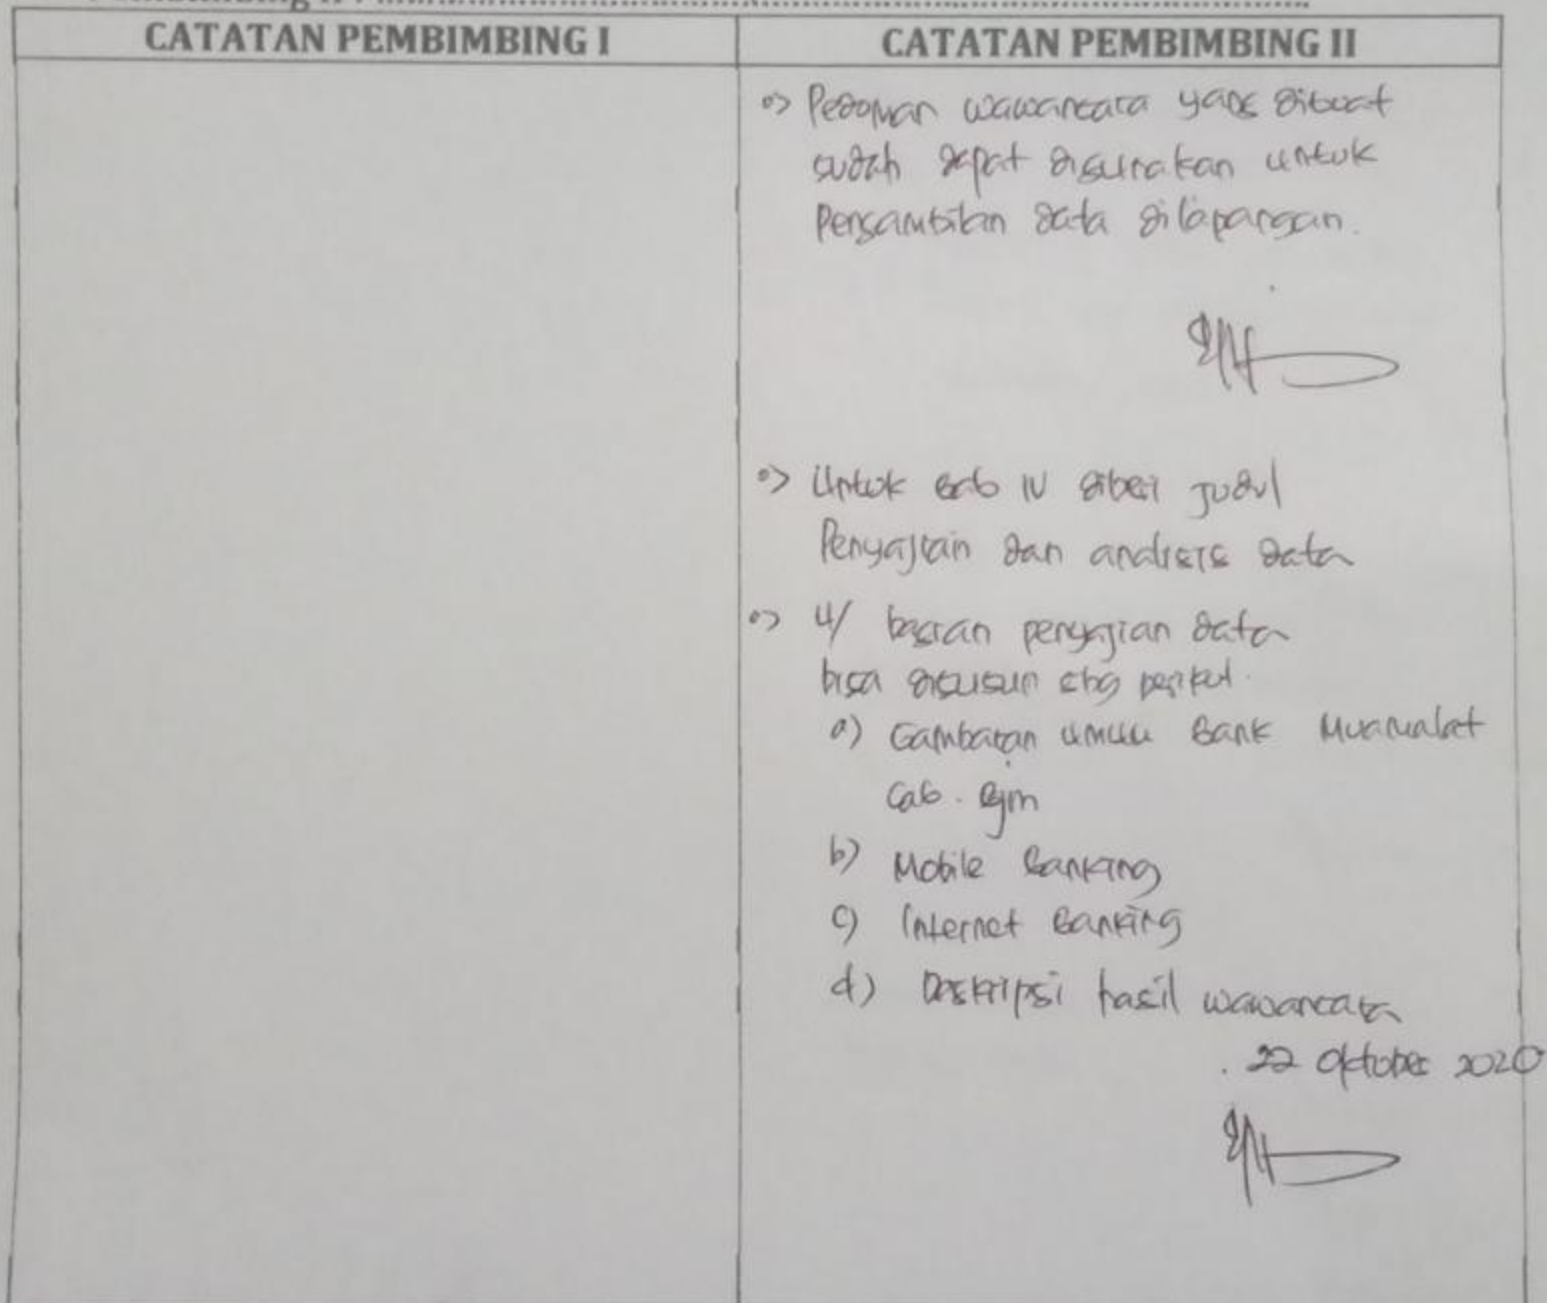 CATATAN PEMBIMBING I
CATATAN PEMBIMBING II
=> Pedoman wawancara yang dibuat
sudah dapat digunakan untuk
Pengambilan data dilapangan.
=> Untuk Bab IV diberi judul
Penyajian dan analisis data
=> u/ bagian penyajian data
bisa disusun sbg berikut.
a) Gambaran umum Bank Muamalat
Cab. Bjm
b) Mobile Banking
c) Internet Banking
d) Deskripsi hasil wawancara
22 Oktober 2020